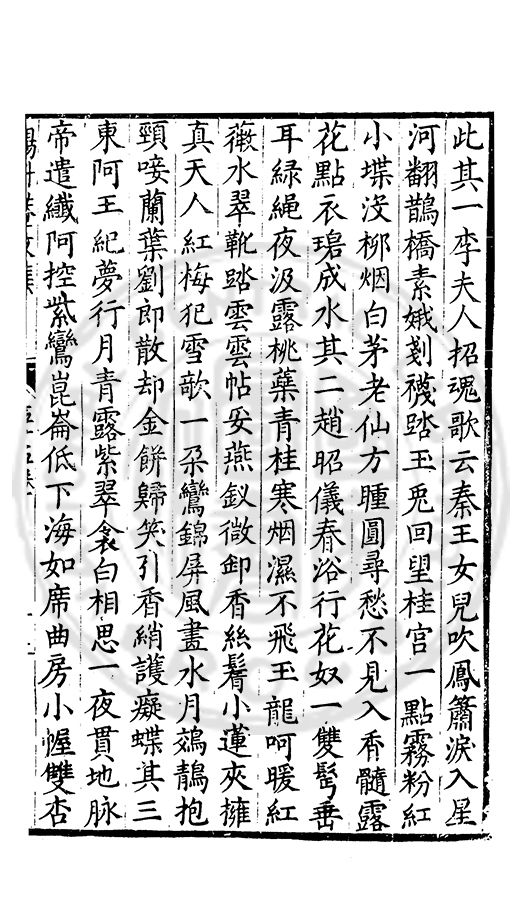 此其一李夫人招魂歌云秦王女兒吹鳳簫淚入星
河翻鵲橋素娥剗襪踏玉兎回望桂宮一點霧粉紅
小堞没栁烟白茅老仙方瞳圓尋愁不見入香髓露
花點衣碧成水其二趙昭儀春浴行花奴一雙髩垂
耳緑繩夜汲露桃蘂青桂寒烟濕不飛玉龍呵暖紅
薇水翠靴踏雲雲帖妥燕釵微卸香絲鬌小蓮夾擁
真天人紅梅犯雪歌一朶鸞錦屏風畫水月鵁鶄抱
頸唼蘭葉劉郎散却金餅歸笑引香綃護癡蝶其三
東阿王紀夢行月青露紫翠衾白相思一夜貫地脉
帝遣纖阿控紫鸞崑崙低下海如席曲房小幄雙杏